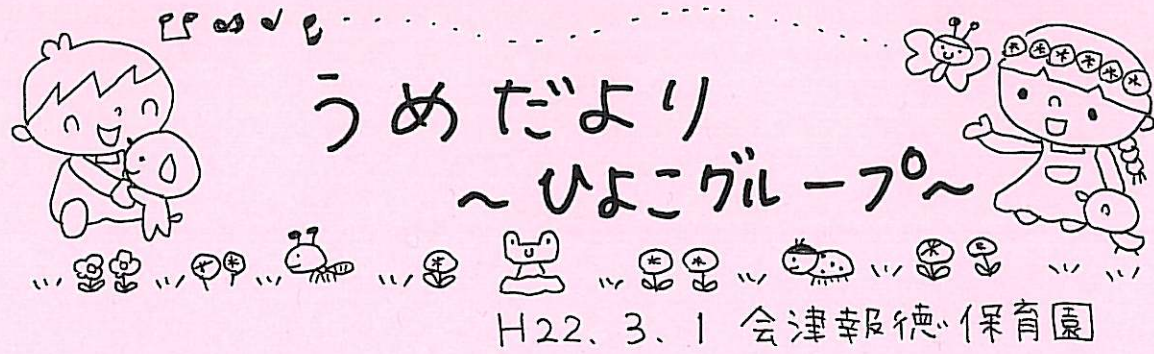 うめだより
～ひよこグループ～
H22.3.1 会津報徳保育園